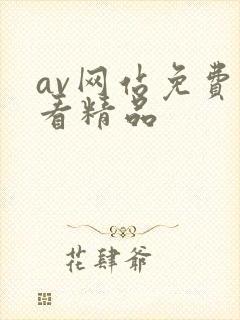 av网佔免費
看精品
花肆爷